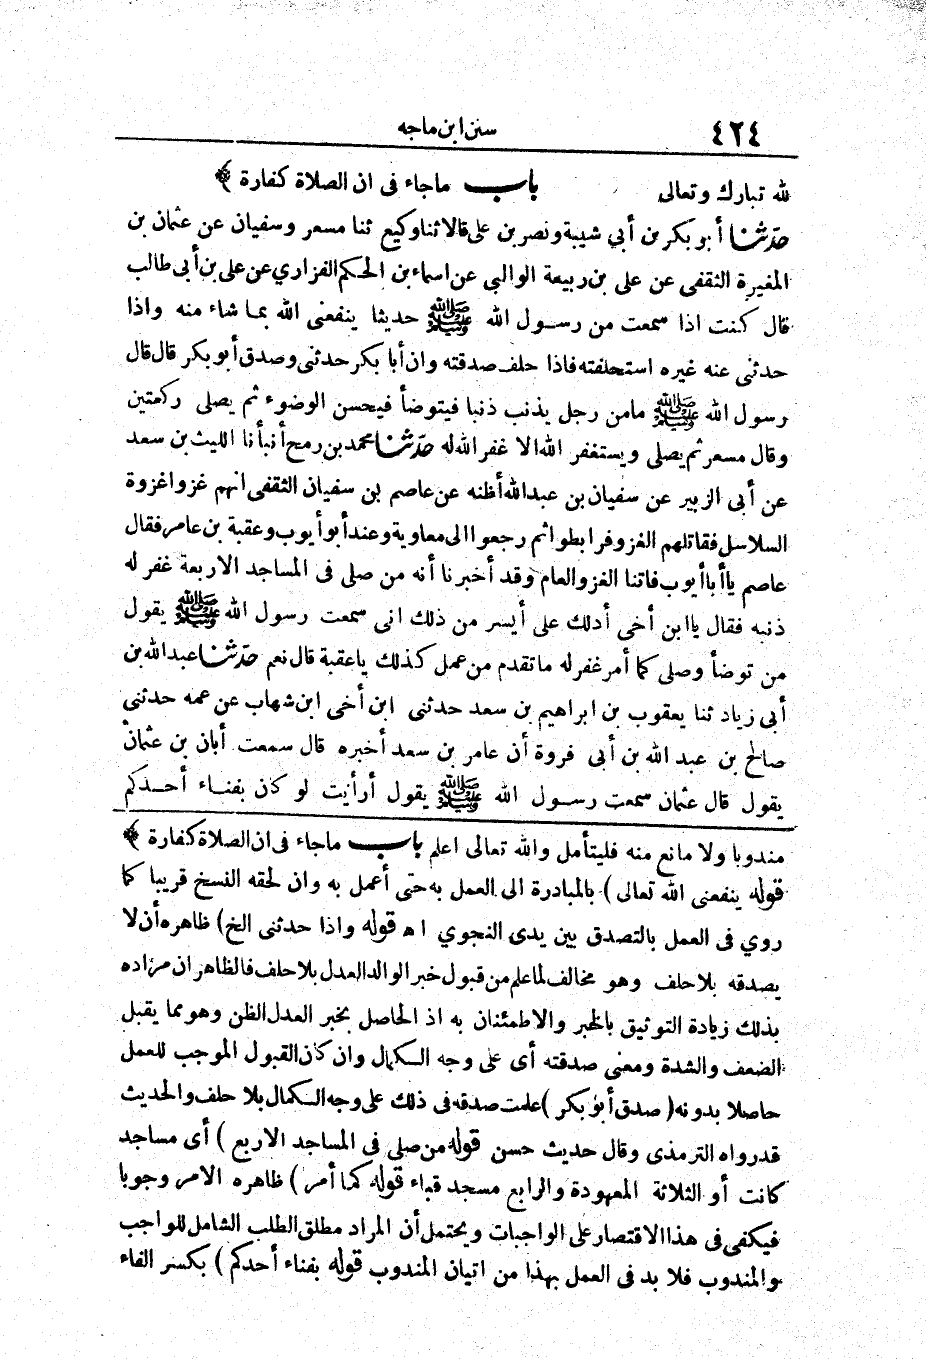 ٤٢٤ سنن ابن ماجه
لله تبارك وتعالى باب ماجاء فى ان الصلاة كفارة ﴾
حدّثنا أبو بكر بن أبي شيبة ونصر بن على قالا ثنا وكيع ثنا مسعر وسفيان عن عثمان بن
المغيرة الثقفى عن على بن ربيعة الوالبي عن اسماء بن الحكم الفزاري عن على بن أبى طالب
قال كنت اذا سمعت من رسول الله ﷺ حديثا ينفعنى الله بما شاء منه واذا
حدثنى عنه غيره استحلفته فاذا حلف صدقته وان أبا بكر حدثنى وصدق أبو بكر قال قال
رسول الله ﷺ مامن رجل يذنب ذنبا فيتوضأ فيحسن الوضوء ثم يصلى ركعتين
وقال مسعر ثم يصلى ويستغفر الله الا غفر الله له حدّثنا محمد بن رمح أنبأنا الليث بن سعد
عن أبى الزبير عن سفيان بن عبدالله أظنه عن عاصم بن سفيان الثقفى انهم غزوا غزوة
السلاسل فقاتلهم الغزو فرابطوا ثم رجعوا الى معاوية وعند أبو أيوب وعقبة بن عامر فقال
عاصم يا أبا أيوب فاتنا الغزو العام وقد أخبرنا أنه من صلى فى المساجد الاربعة غفر له
ذنبه فقال يا ابن أخى أدلك على أيسر من ذلك انى سمعت رسول الله ﷺ يقول
من توضأ وصلى كما أمر غفر له ما تقدم من عمل كذلك يا عقبة قال نعم حدّثنا عبدالله بن
أبى زياد ثنا يعقوب بن ابراهيم بن سعد حدثنى ابن أخى ابن شهاب عن عمه حدثنى
صالح بن عبد الله بن أبى فروة أن عامر بن سعد أخبره قال سمعت أبان بن عثمان
يقول قال عثمان سمعت رسول الله ﷺ يقول أرأيت لو كان بفناء أحدكم
مندوبا ولا مانع منه فليتأمل والله تعالى اعلم باب ماجاء فى ان الصلاة كفارة ﴾
قوله ينفعنى الله تعالى ) بالمبادرة الى العمل به حتى أعمل به وان لحقه النسخ قريبا كما
روي فى العمل بالتصدق بين يدى النجوي اه قوله واذا حدثنى الخ) ظاهره أن لا
يصدقه بلا حلف وهو مخالف لما علم من قبول خبر الوالد العدل بلا حلف فالظاهر ان مراده
بذلك زيادة التوثيق بالخبر والاطمئنان به اذ الحاصل بخبر العدل الظن وهو مما يقبل
الضعف والشدة ومعنى صدقته أى على وجه الكمال وان كان القبول الموجب للعمل
حاصلا بدونه ( صدق أبو بكر ) علمت صدقه فى ذلك على وجه الكمال بلا حلف والحديث
قد رواه الترمذى وقال حديث حسن قوله من صلى فى المساجد الاربع ) أى مساجد
كانت أو الثلاثة المعهودة والرابع مسجد قباء قوله كما أمر ) ظاهره الامر وجوبا
فيكفى فى هذا الاقتصار على الواجبات ويحتمل أن المراد مطلق الطلب الشامل للواجب
والمندوب فلا بد فى العمل بهذا من اتيان المندوب قوله بفناء أحدكم ) بكسر الفاء